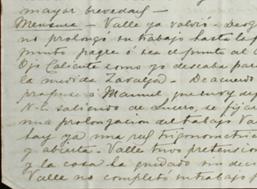 mayor brevedad —
Mensura — Valle ya volvió —
no prolongó su trabajo hasta le
punto pagre ó sea el punto al
Ojo Caliente como yo deseaba para
la medida Zaralga. — De acuerdo
profuse á Manuel que
N-E saliendo de Lucero, se fijar
una prolongacion del trabajo Va
hay ya una red trigonometric
y abierta. Valle tuvo pretension
y la cosa ha quedado sin dec
Valle no completó su trabajo p